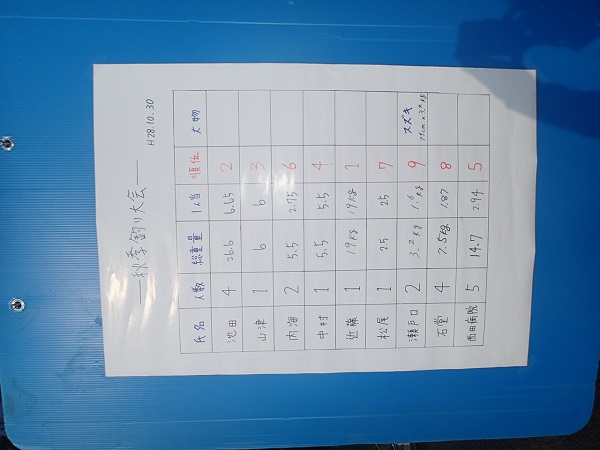 秋季釣り大会
H28.10.30
氏名 人数 総重量 1人当 順位 大物
池田 4 26.6 6.65 2
山津 1 6 6 3
内海 2 5.5 2.75 6
中村 1 5.5 5.5 4
近藤 1 19kg 19kg 1
松尾 1 25 25 7
瀬戸口 2 3.2kg 1.6kg 9 スズキ
石堂 4 7.5kg 1.87 8
西田病院 5 14.7 2.94 5